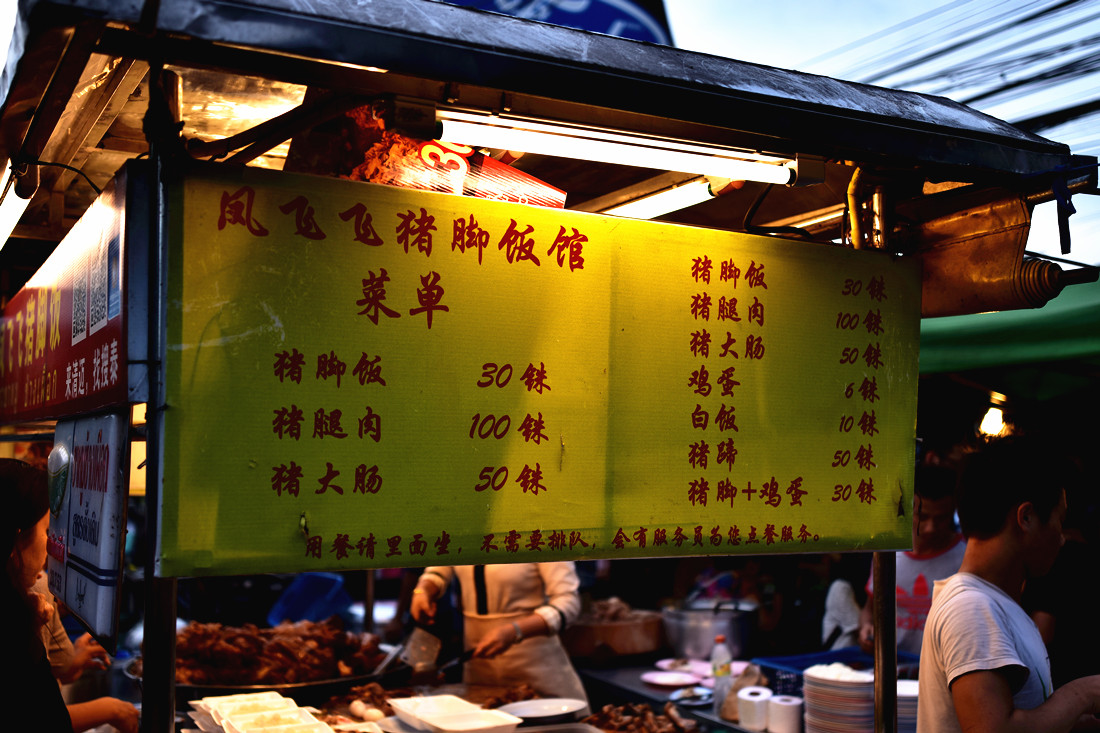 凤飞飞猪脚饭馆
菜单
猪脚饭 30 铢
猪腿肉 100 铢
猪大肠 50 铢
猪脚饭 30 铢
猪腿肉 100 铢
猪大肠 50 铢
鸡蛋 6 铢
白饭 10 铢
猪蹄 50 铢
猪脚+鸡蛋 30 铢
用餐请里面坐，不需要排队，会有服务员为您点餐服务。
飞飞猪脚饭
来清迈，找搜泰